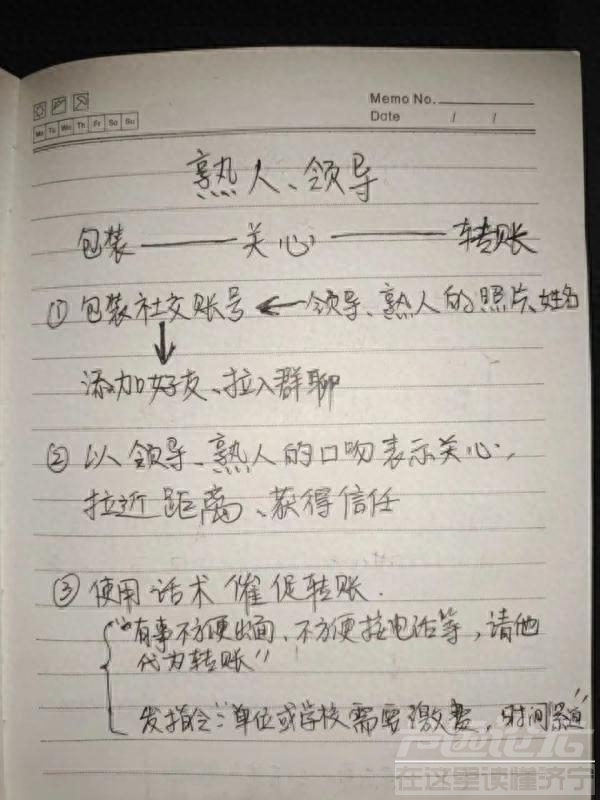 Memo No.
Mo Tu We Th Fr Sa Su
Date / /
熟人、领导
包装 —— 关心 —— 转账
① 包装社交账号 ← 领导、熟人的照片、姓名
↓
添加好友、拉入群聊
② 以领导、熟人的口吻表示关心,
拉近距离、获得信任
③ 使用话术催促转账.
“有事不方便出面、不方便接电话等，请他
代为转账”
发指令：“单位或学校需要缴费，时间紧迫”
在这里读懂济宁